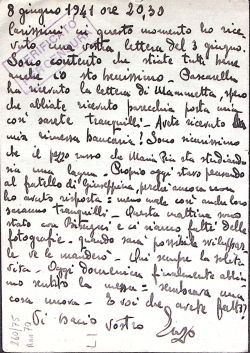 8 giugno 1941 ore 20,30
Carissimi in questo momento ho rice
vuto una vostra lettera del 3 giugno
Sono contento che stiate tutti bene
anche io sto benissimo - Pasquale
ha ricevuto la lettera di Mammetta, spero
che abbiate ricevuto parecchia posta mia
così sarete tranquilli - Avete ricevuto la
mia rimessa bancaria? Sono sicurissimo
che il pezzo russo che Maria Pia sta studiando
sia una lagna - Proprio oggi stavo pensando
al fratello di Giuseppina, perchè ancora non
ho avuto risposta: meno male così anche loro
saranno tranquilli - Questa mattina sono
stato con e ci siamo fatti delle
fotografie - quando sarà possibile sviluppar
le ve le manderò - Qui sempre la solita
vita - Oggi domenica finalmente abbia
mo sentito la messa: sembrava una
cosa nuova - E voi che avete fatto?
Vi bacio vostro Enzo